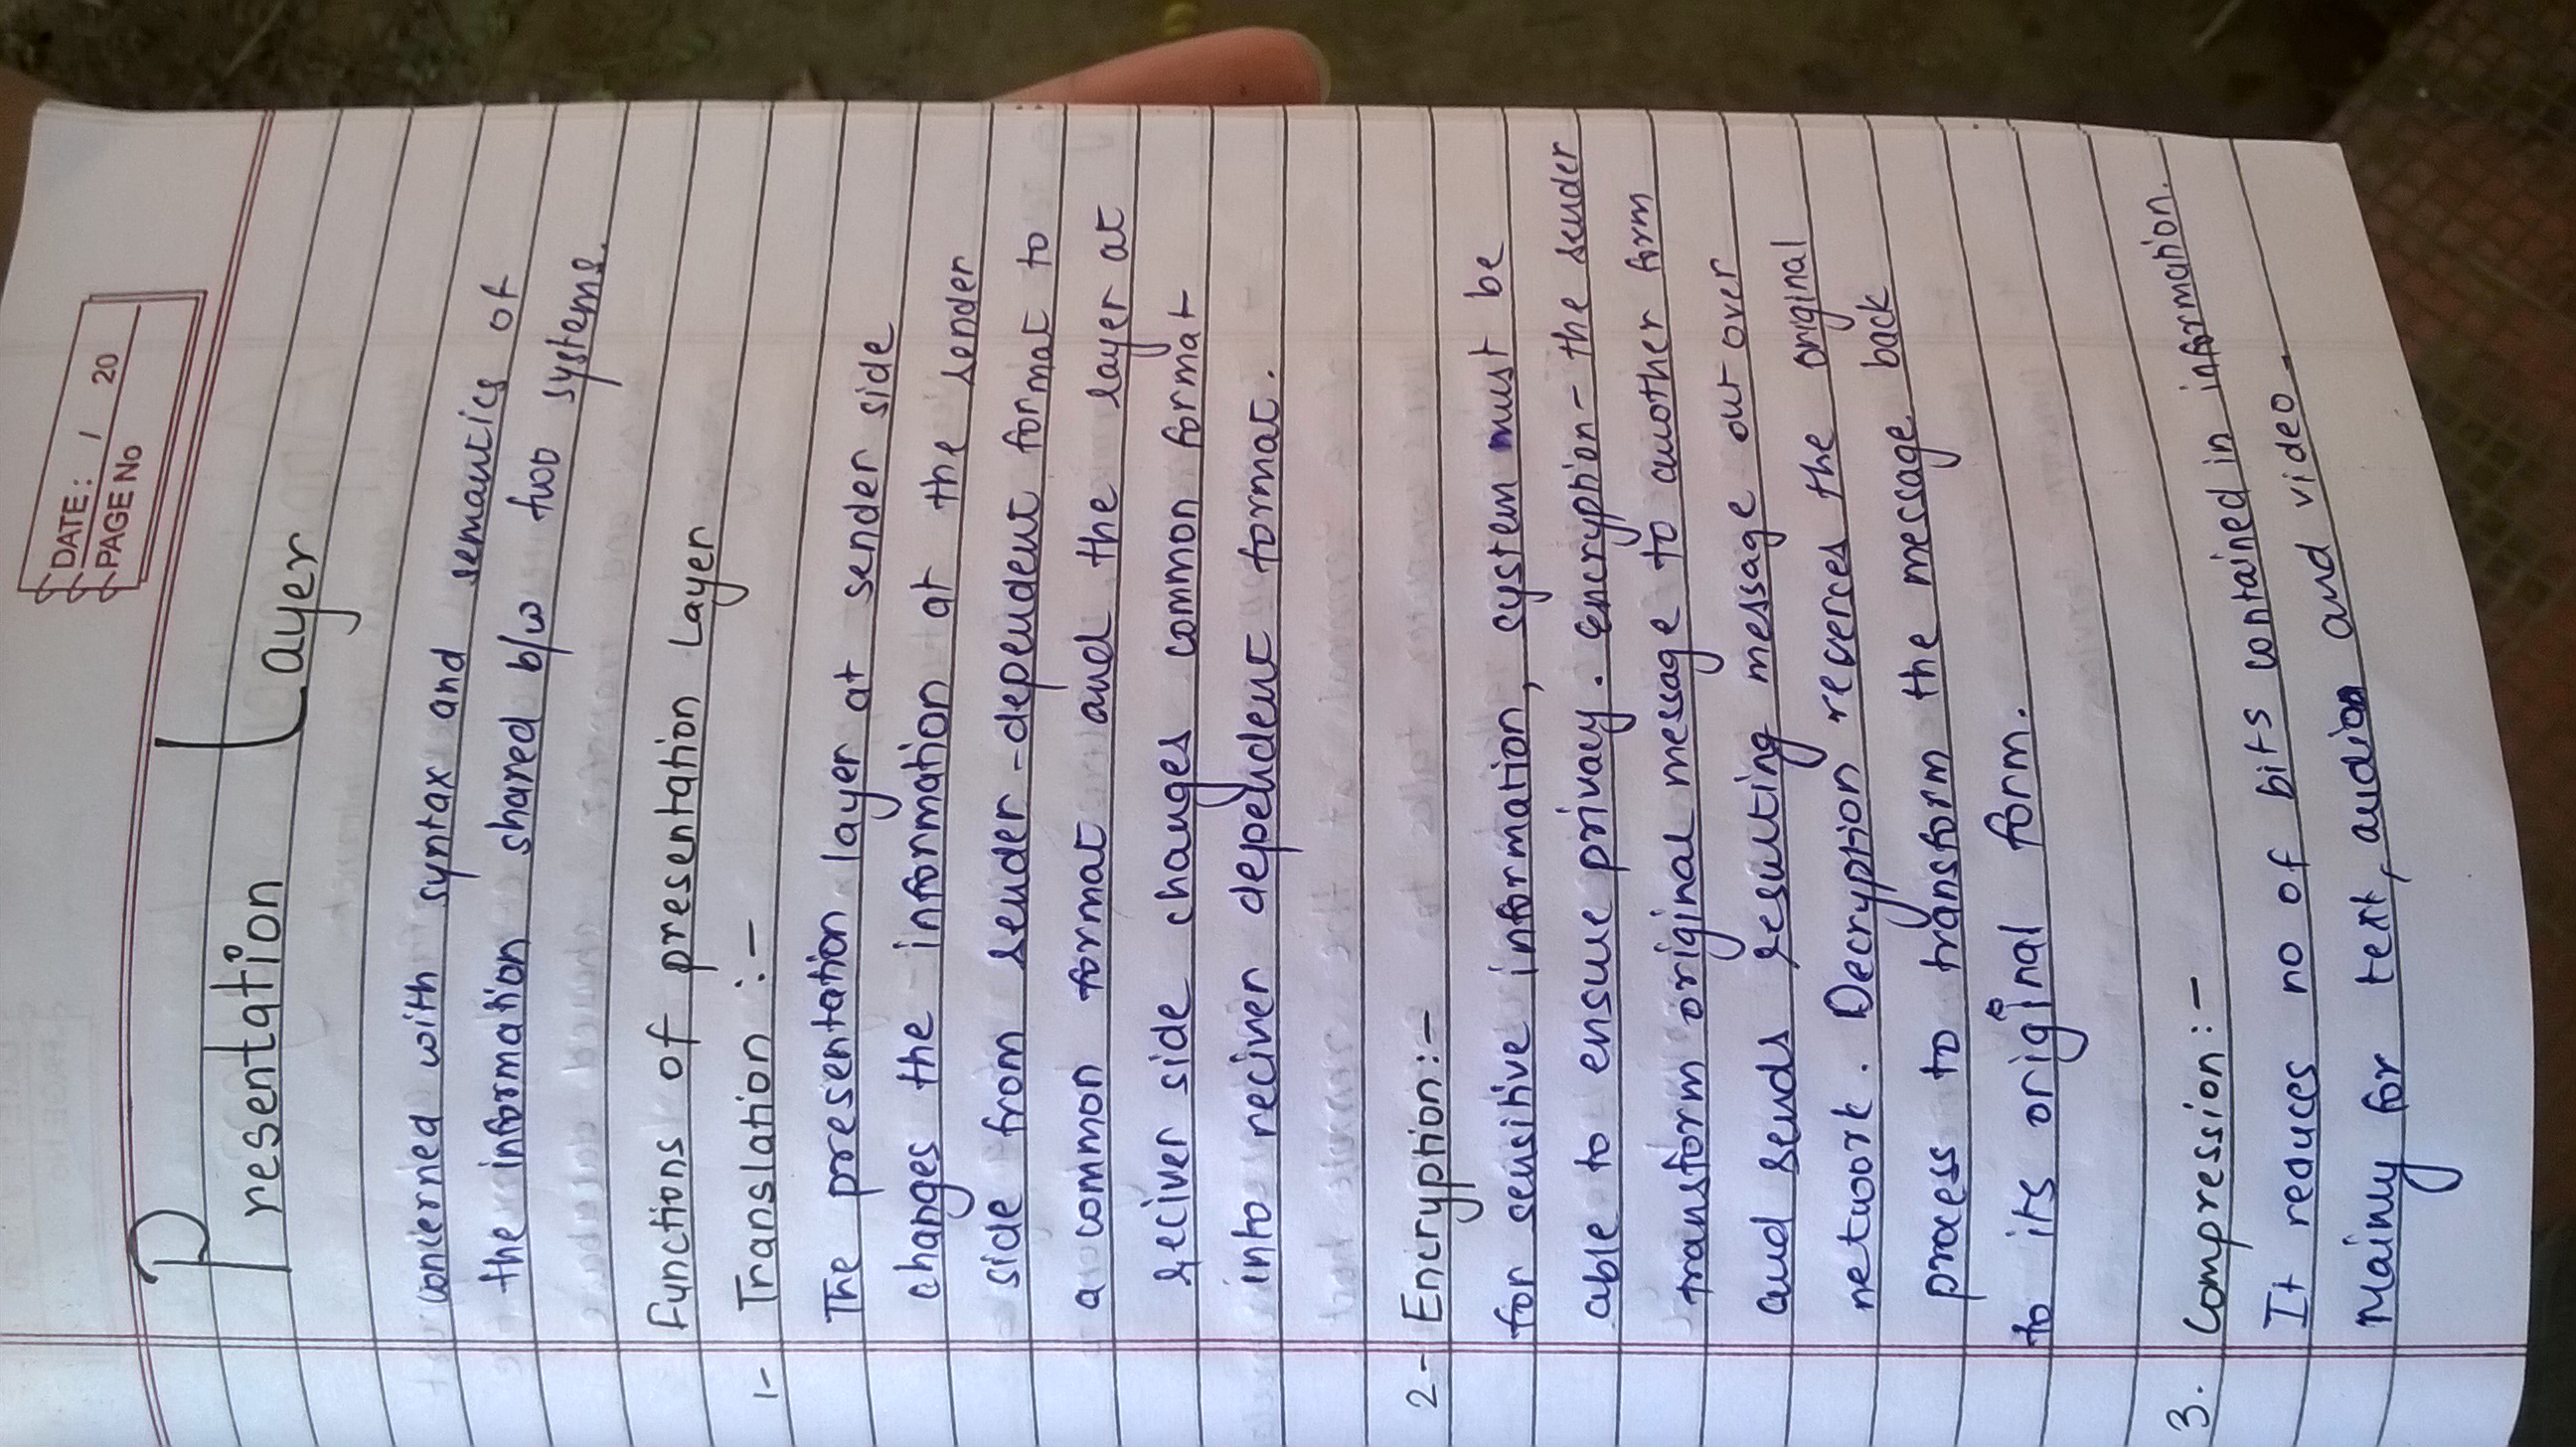 DATE: / 20
PAGE No
Presentation Layer
concerned with syntax and semantics of
the information shared b/w two systems.
Functions of presentation Layer
1- Translation :-
The presentation layer at sender side
changes the information at the sender
side from sender-dependent format to
a common format and the layer at
reciver side changes common format
into reciver dependent format.
2- Encryption:-
for sensitive information, system must be
able to ensure privacy. Encryption- the sender
transform original message to another form
and sends resulting message out over
network. Decryption reverces the original
process to transform the message back
to its original form.
3. Compression:-
It reduces no of bits contained in information.
Mainly for text, audio and video.